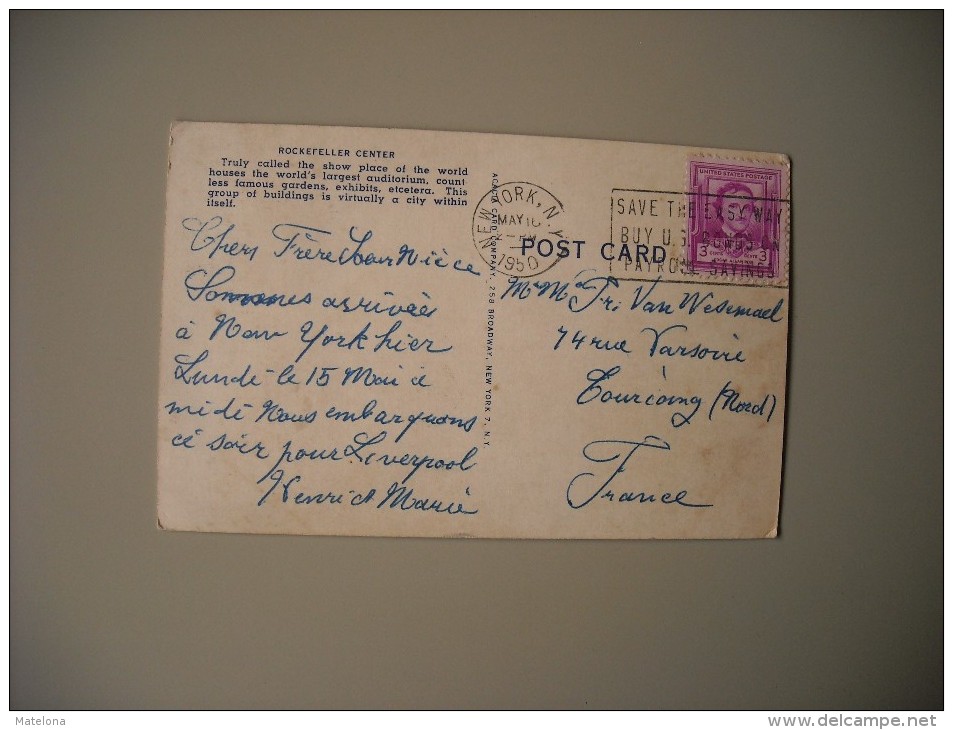 ROCKEFELLER CENTER
Truly called the show place of the world
houses the world's largest auditorium, count
less famous gardens, exhibits, etcetera. This
group of buildings is virtually a city within
itself.
Chers Frère Soeur Nièce
Sommes arrivés
à New York hier
Lundi le 15 Mai à
midi Nous embarquons
ce soir pour Liverpool
Henri et Marie
ACACIA CARD COMPANY, 258 BROADWAY, NEW YORK 7, N.Y.
NEW YORK, N.Y.
MAY 16
PM
1950
SAVE THE EASY WAY
BUY U.S. BONDS ON
PAYROLL SAVINGS
UNITED STATES POSTAGE
3 CENTS 3
POST CARD
Mr Me Fr. Van Wesemael
74 rue Varsovie
Tourcoing (Nord)
France
Matelona
www.delcampe.net